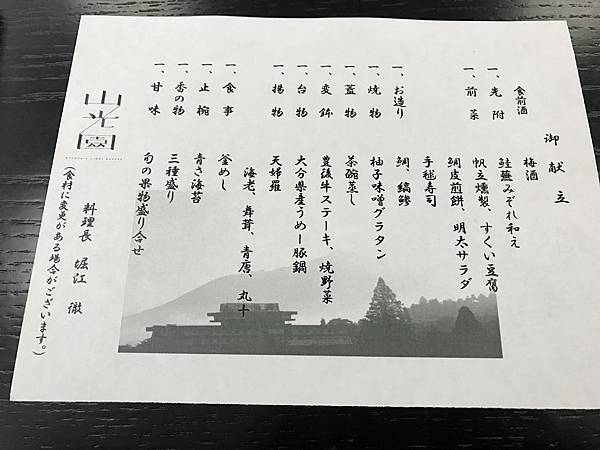 御献立
食前酒　梅酒
一、先附　鮭蕪みぞれ和え
一、前菜　帆立燻製、すくい豆腐
鯛皮煎餅、明太サラダ
手毬寿司
一、お造り　鯛、縞鯵
一、焼物　柚子味噌グラタン
一、蓋物　茶碗蒸し
一、変鉢　豊後牛ステーキ、焼野菜
一、台物　大分県産うめー豚鍋
一、揚物　天婦羅
海老、舞茸、青唐、丸十
一、食事　釜めし
一、止椀　青さ海苔
一、香の物　三種盛り
一、甘味　旬の果物盛り合せ
料理長　堀江　徹
(食材に変更がある場合がございます。)
山光園